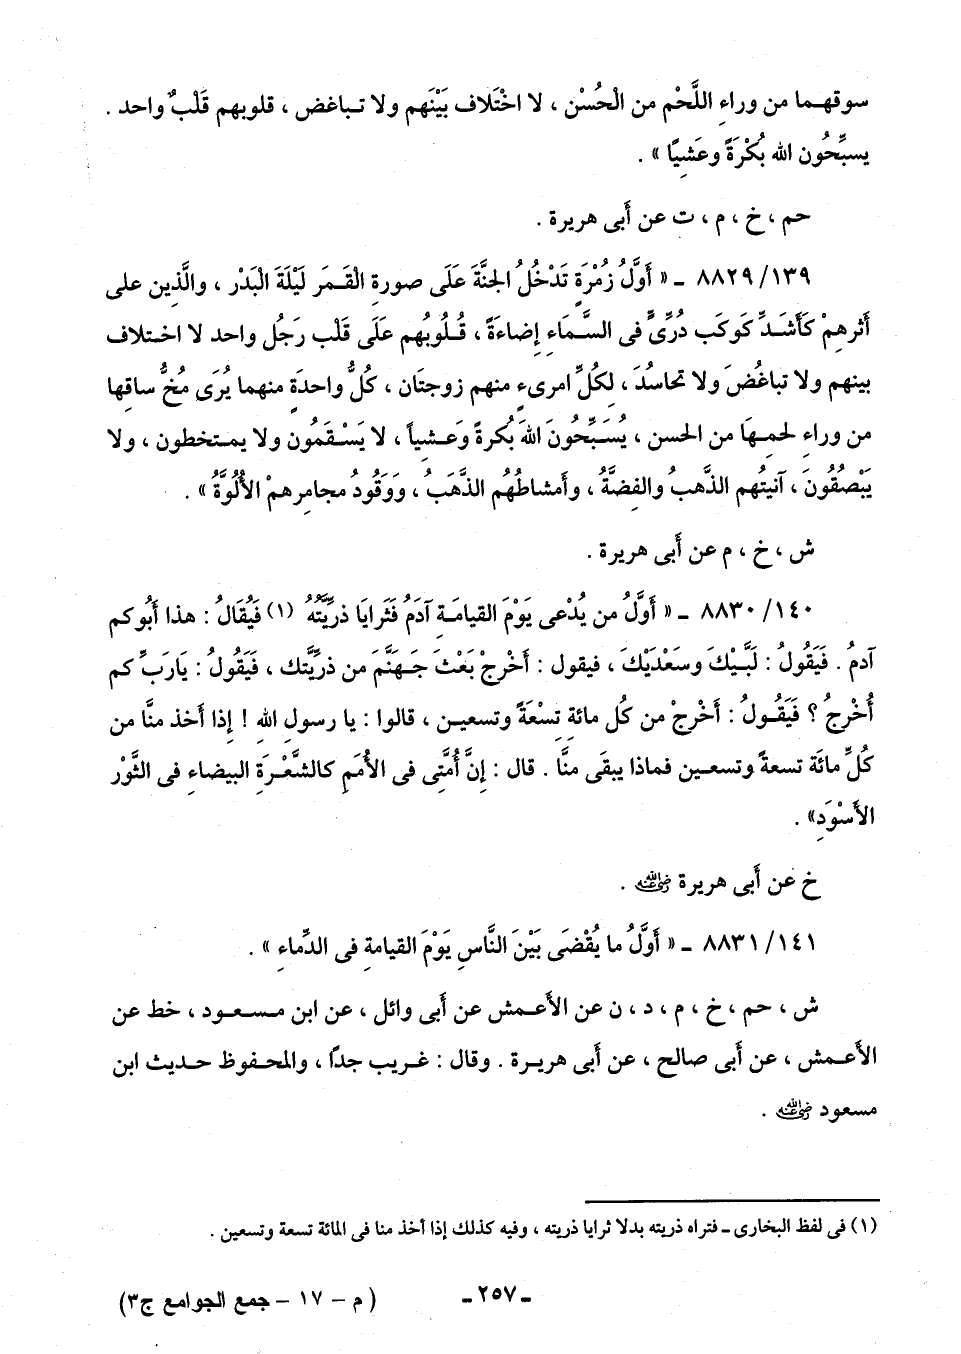 سوقهما من وراءِ اللَّحْم من الْحُسْن ، لا اخْتَلاف بَيْنَهم ولا تباغض ، قلوبهم قَلْبٌ واحد .
يسبِّحُون الله بُكْرَةً وعَشِيًا » .
حم ، خ ، م ، ت عن أَبى هريرة .
١٣٩/ ٨٨٢٩ ـ « أَوَّلُ زُمْرَةٍ تَدْخُلُ الجنَّةَ عَلَى صورةِ الْقَمَر لَيْلَةَ الْبَدْر ، والَّذِين على
أثرهِمْ كَأَشَدِّ كَوكَب دُرِّىٍّ فى السَّمَاءِ إِضاءَةً ، قُلُوبُهم عَلَى قلب رَجُل واحد لا اختلاف
بينهم ولا تباغُضَ ولا تحاسُدَ ، لِكلِّ امرىءٍ منهم زوجتَان ، كلُّ واحدَةٍ منهما يُرَى مُخُّ ساقِها
من وراءِ لحمِهَا من الحسن ، يُسَبِّحُونَ اللهَ بُكرةً وَعَشِياً ، لا يَسْقَمُون ولا يمتخطون ، ولا
يَبْصُقُونَ ، آنيتُهم الذَّهبُ والفِضَّةُ ، وأَمشاطُهُم الذَّهَبُ ، ووَقُودُ مجامرِهمْ الأُلُوَّةُ » .
ش ، خ ، م عن أَبى هريرة .
١٤٠/ ٨٨٣٠ ـ « أَوَّلُ من يُدْعى يَوْمَ القيامَةِ آدَمُ فَتَرايَا ذرِّيَّتُهُ (١) فَيُقَالُ : هذا أَبُوكم
آدمُ . فَيَقُولُ : لَبَّيْكَ وسَعْدَيْكَ ، فيقول : أَخْرِجْ بَعْثَ جَهَنَّمَ من ذرِّيَّتك ، فَيَقُولُ : يَاربِّ كم
أُخْرِجُ ؟ فَيَقُولُ : أَخْرِجْ من كُل مائةٍ تِسْعَةً وتسعين ، قالوا : يا رسولِ الله ! إِذا أَخذ منَّا من
كُلِّ مائَة تسعةً وتسعين فماذا يبقَى منَّا . قال : إِنَّ أُمَّتِى فى الأُمَمِ كالشَّعْرَةِ البيضاءِ فى الثَّوْر
الأَسْوَدِ» .
خ عن أَبى هريرة رضي الله عنه .
١٤١/ ٨٨٣١ ـ « أَوَّلُ ما يُقْضَى بَيْنَ النَّاسِ يَوْمَ القيامةِ فى الدِّماءِ » .
ش ، حم ، خ ، م ، د ، ن عن الأَعمش عن أَبى وائل ، عن ابن مسعود ، خط عن
الأَعمش ، عن أَبى صالح ، عن أَبى هريرة . وقال : غريب جدًا ، والمحفوظ حديث ابن
مسعود رضي الله عنه .
(١) فى لفظ البخارى ـ فتراه ذريته بدلا ثرايا ذريته ، وفيه كذلك إذا أخذ منا فى المائة تسعة وتسعين .
ـ ٢٥٧ ـ
( م – ١٧ – جمع الجوامع ج٣)